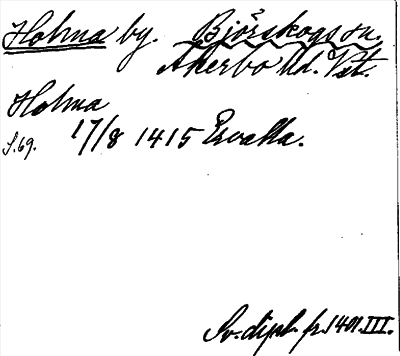 Holma by. Björskogs sn.
Åkerbo hd. Vstm.
Holma
S. 69. 17/8 1415 Ervalla.
Sv. dipl. fr. 1401. III.